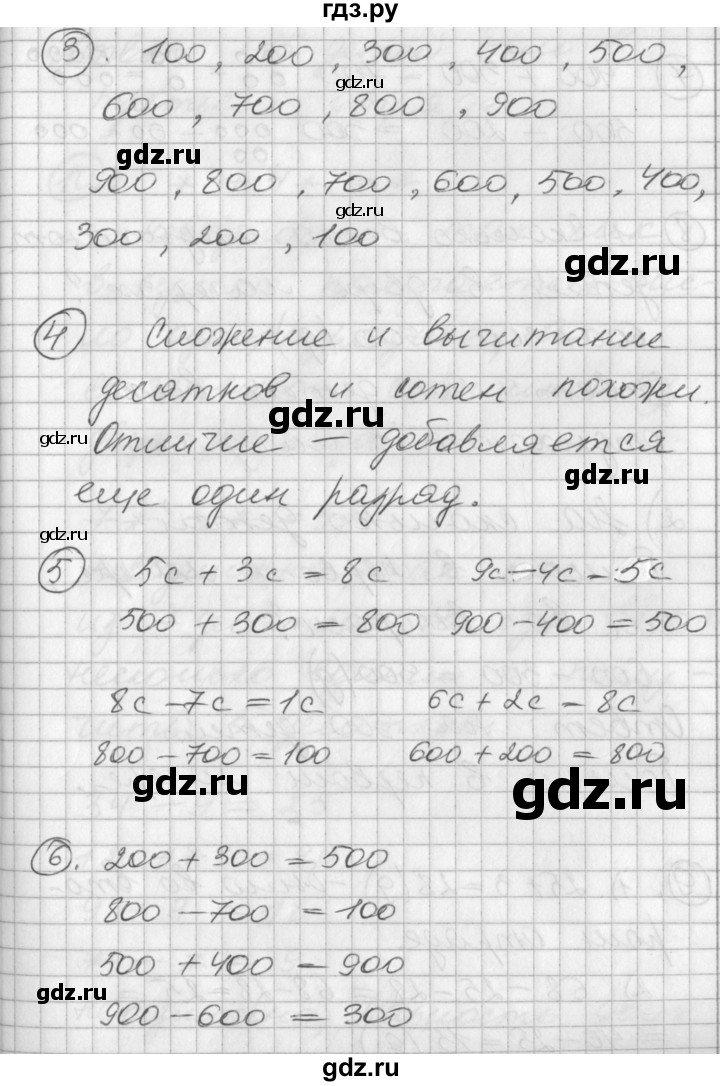 гдз.ру
3. 100, 200, 300, 400, 500,
600, 700, 800, 900
900, 800, 700, 600, 500, 400,
300, 200, 100
4 Сложение и вычитание
десятков и сотен похожи.
Отличие – добавляется
еще один разряд.
5 5с + 3с = 8с 9с – 4с = 5с
500 + 300 = 800 900 – 400 = 500
8с – 7с = 1с 6с + 2с = 8с
800 – 700 = 100 600 + 200 = 800
6. 200 + 300 = 500
800 – 700 = 100
500 + 400 = 900
900 – 600 = 300
gdz.ru
gdz.ru
gdz.ru
gdz.ru
gdz.ru
gdz.ru
gdz.ru
gdz.ru
gdz.ru
gdz.ru
gdz.ru
gdz.ru
gdz.ru
gdz.ru